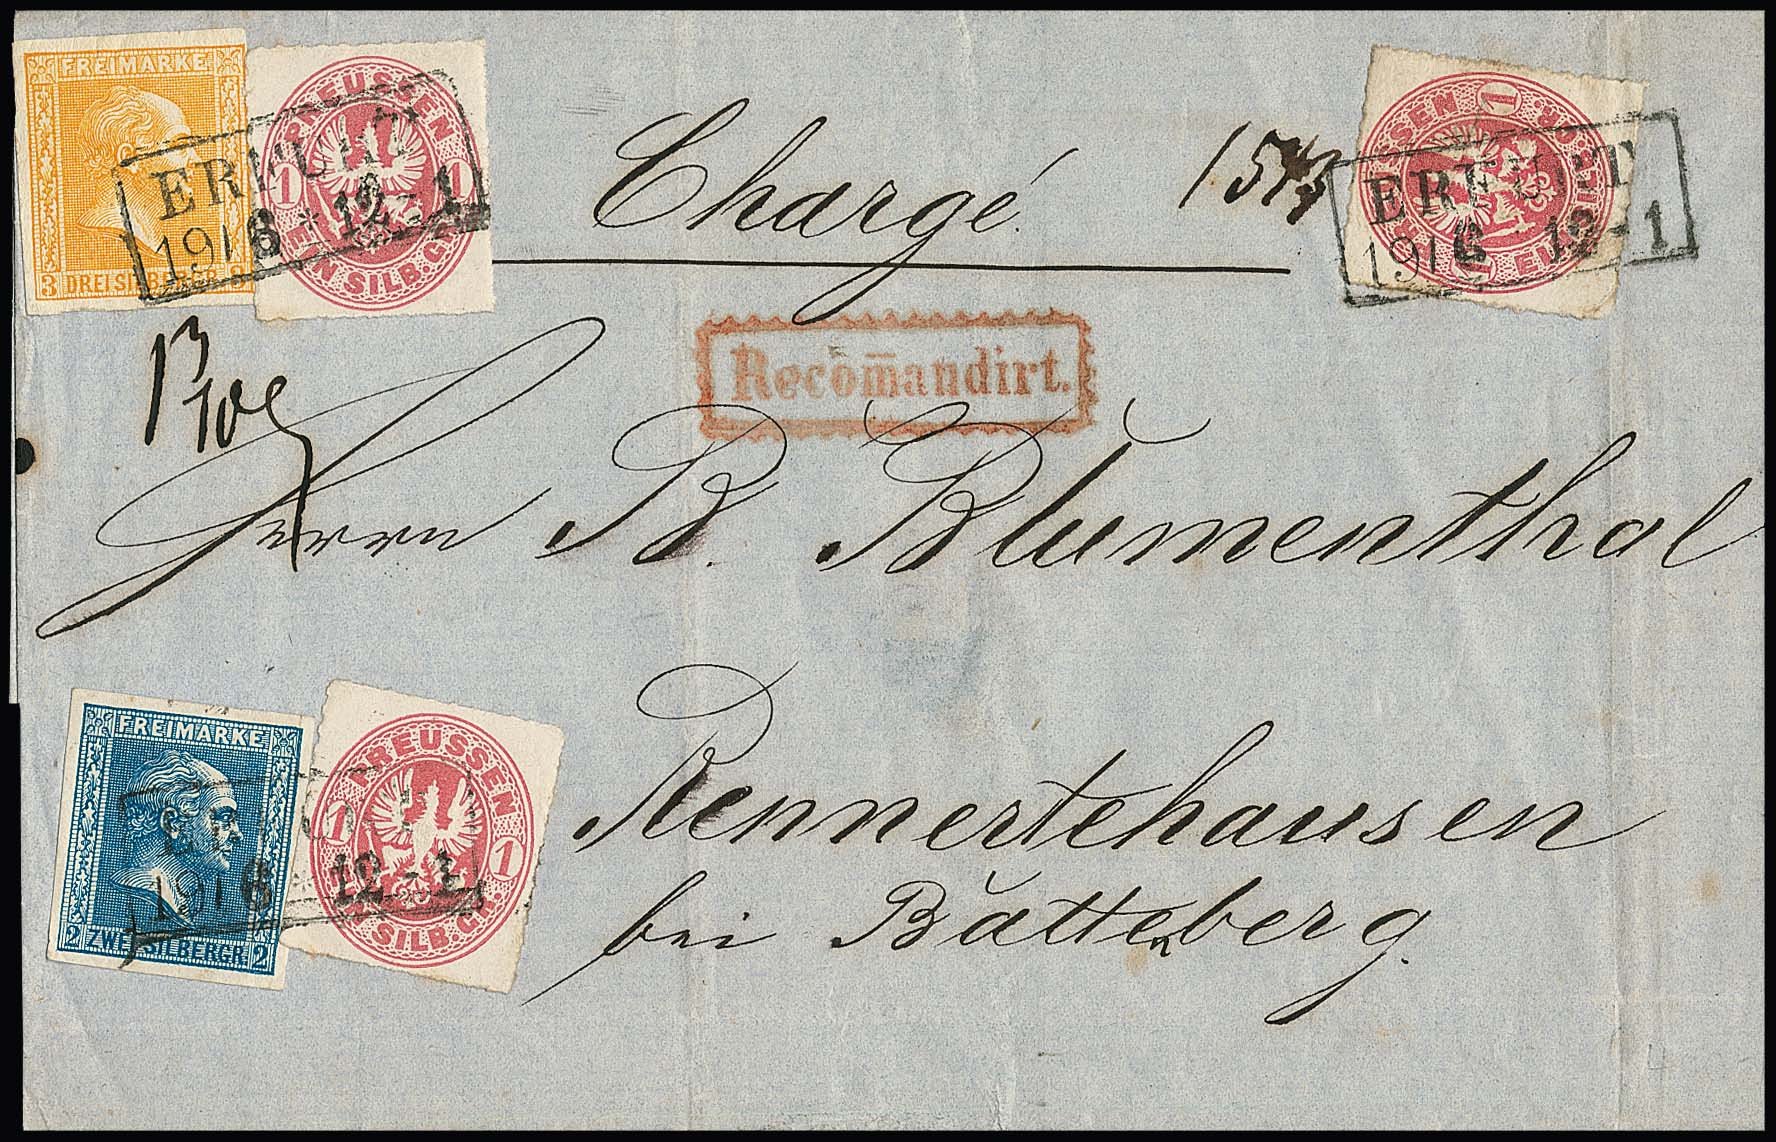 FREIMARKE
3 DREI SILBERGR. 3
PREUSSEN
1 1
EIN SILB.GR.
ERFURT
19 | 6 * 12-1
Chargé.
PREUSSEN
1 1
EIN SILB.GR.
ERFURT
19 | 6 12-1
Recom̄andirt.
Herrn B. Blumenthal
FREIMARKE
2 ZWEI SILBERGR. 2
PREUSSEN
1 1
EIN SILB.GR.
ERFURT
19 | 6 * 12-1
Rennertehausen
bei Battenberg.